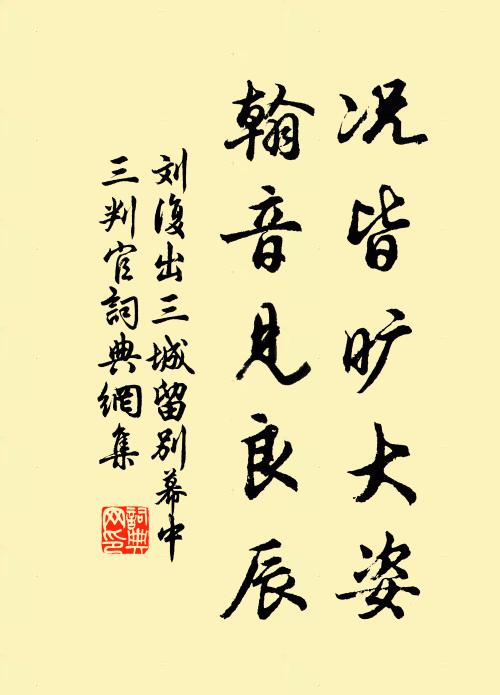 况皆旷大姿
翰音见良辰
刘復出三城留别幕中
三判官詞典網集
詞典网印